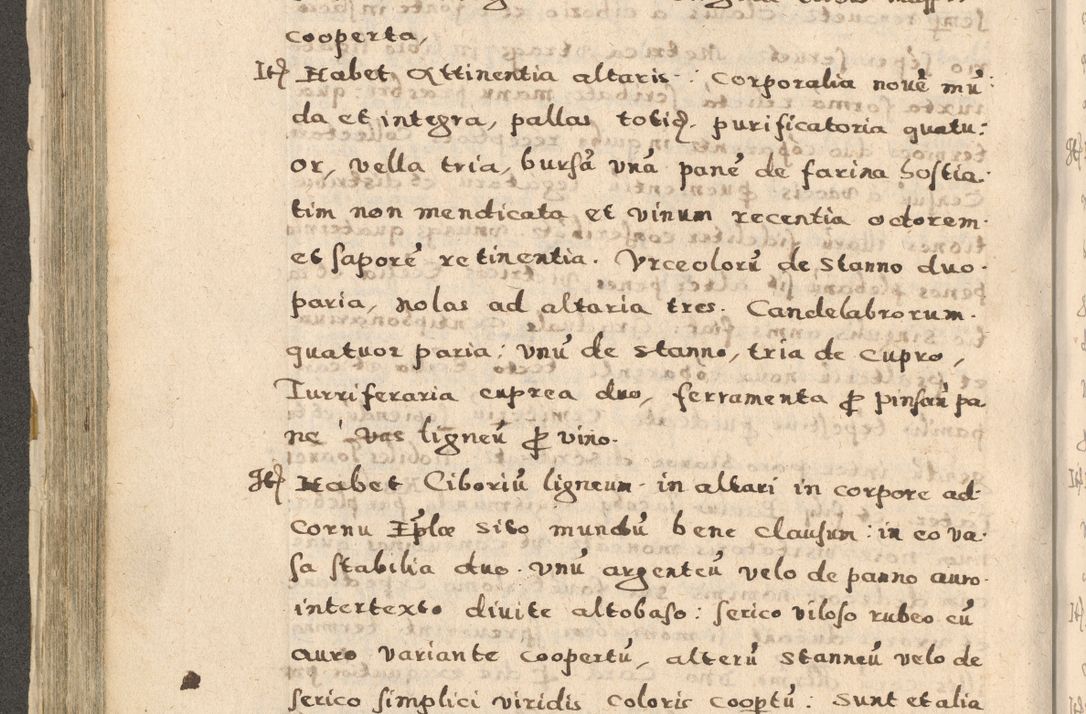 cooperta,
Itȩ Habet Attinentia altaris: Corporalia novē mū
da et integra, pallas totiȡ. purificatoria quatu:
or, vella tria, bursā unā panē de farina hostia
tim non mendicata et vinum recentia odorem
et saporē retinentia. Urceolorū de stanno duo
paria, nolas ad altaria tres. Candelabrorum
quatuor paria: unū de stanno, tria de cupro,
Turriferaria cuprea duo, ferramenta ꝑ pinsan̄ pa
ne vas ligneū ꝑ vino.
Itȩ Habet Ciboriū ligneum in altari in corpore ad
cornu Ep̄læ sito mundū bene clausum: in eo va
sa stabilia duo. unū argenteū velo de panno auro
intertexto divite altobaso: serico viloso rubeo cū
auro variante coopertū, alterū stanneū velo de
serico simplici viridis coloris coop̄tū. Sunt et alia